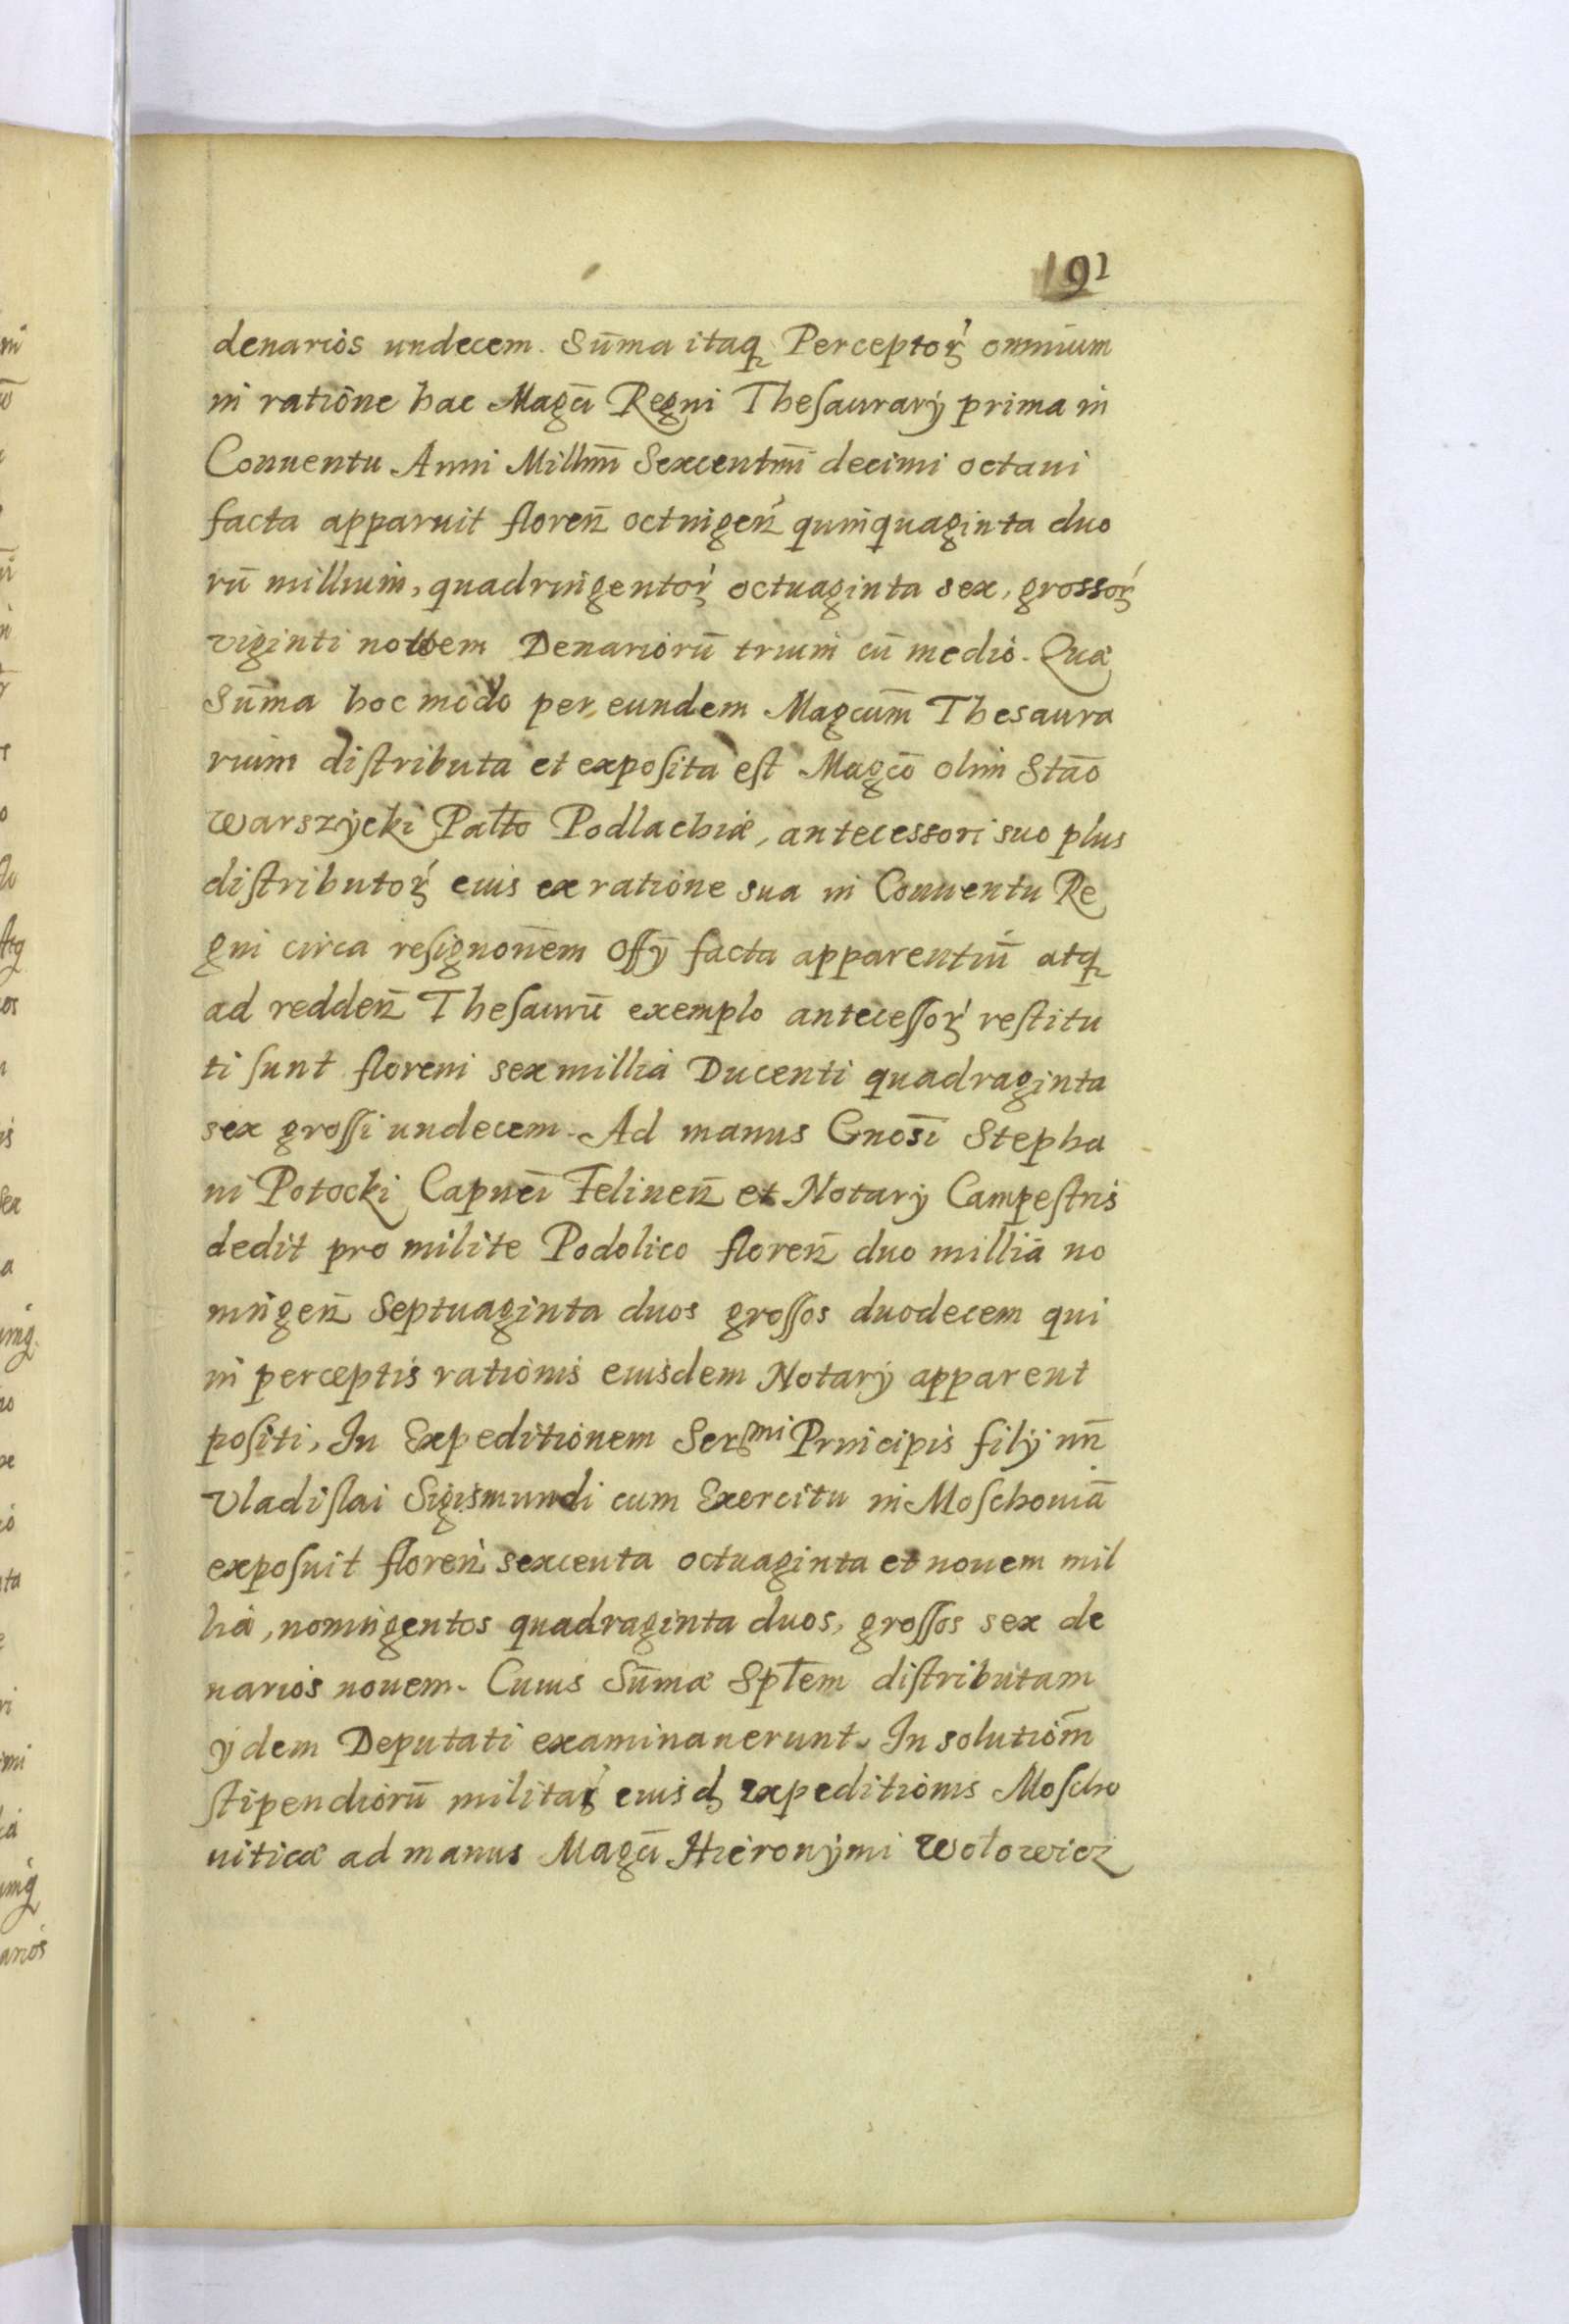 191
denarios undecem. Sūma itaqꝫ Perceptoꝝ omnium
in ratione hac Magci Regni Thesaurarÿ prima in
Conuentu Anni Millmi Sexcentmi decimi octaui
facta apparuit floren̄ octnigen̄ quinquaginta duo
rū millium, quadringentoꝝ octuaginta sex, grossoꝝ
viginti novem Denariorū trium cū medio. Quæ
Sūma hoc modo per eundem Magcum̄ Thesaura
rium distributa et exposita est Magcō olim Stāo
Warszÿcki Patto Podlachiæ, antecessori suo plus
distributoꝝ eius ex ratione sua in Conuentu Re
gni circa resignōnem Offÿ facta apparentiū atqꝫ
ad redden̄ Thesaurū exemplo antecessoꝝ restitu
ti sunt floreni sex millia Ducenti quadraginta
sex grossi undecem. Ad manus Gnosi Stepha
ni Potocki Capnei Felinen̄ et Notarÿ Campestris
dedit pro milite Podolico floren̄ duo millia no
ningen̄ Septuaginta duos grossos duodecem qui
in perceptis rationis eiusdem Notarÿ apparent
positi, In Expeditionem Sermi Principis filÿ nn̄
Vladislai Sigismundi cum Exercitu in Moschouiā
exposuit floren̄ sexcenta octuaginta et nouem mil
lia, noningentos quadraginta duos, grossos sex de
narios nouem. Cuius Sūmæ Sptem distributam
ÿdem Deputati examinauerunt. In solutiom̄
stipendiorū militaꝝ eiusd expeditionis Moscho
uiticæ ad manus Magci Hieronÿmi Wołowicz